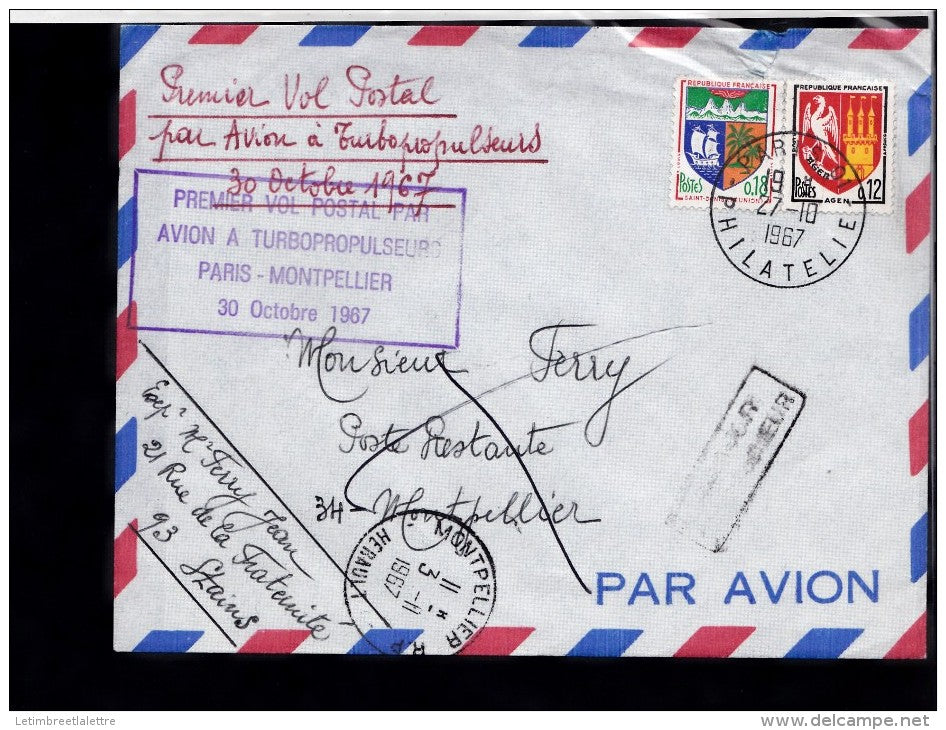 Premier Vol Postal
par Avion à Turbopropulseurs
30 Octobre 1967
PREMIER VOL POSTAL PAR
AVION A TURBOPROPULSEURS
PARIS - MONTPELLIER
30 Octobre 1967
REPUBLIQUE FRANÇAISE
POSTES
0.18
SAINT-DENIS (REUNION)
REPUBLIQUE FRANÇAISE
AGEN
POSTES
0.12
AGEN
PARIS
19 H
27-10
1967
PHILATELIE
Monsieur Ferry
Poste Restante
34 - Montpellier
RETOUR
Exp r Mr Ferry Jean
21 Rue de la Fraternité
93 Stains
MONTPELLIER R.P.
11 H
3-11
1967
HERAULT
PAR AVION
Letimbreetlalettre
delcampe.net